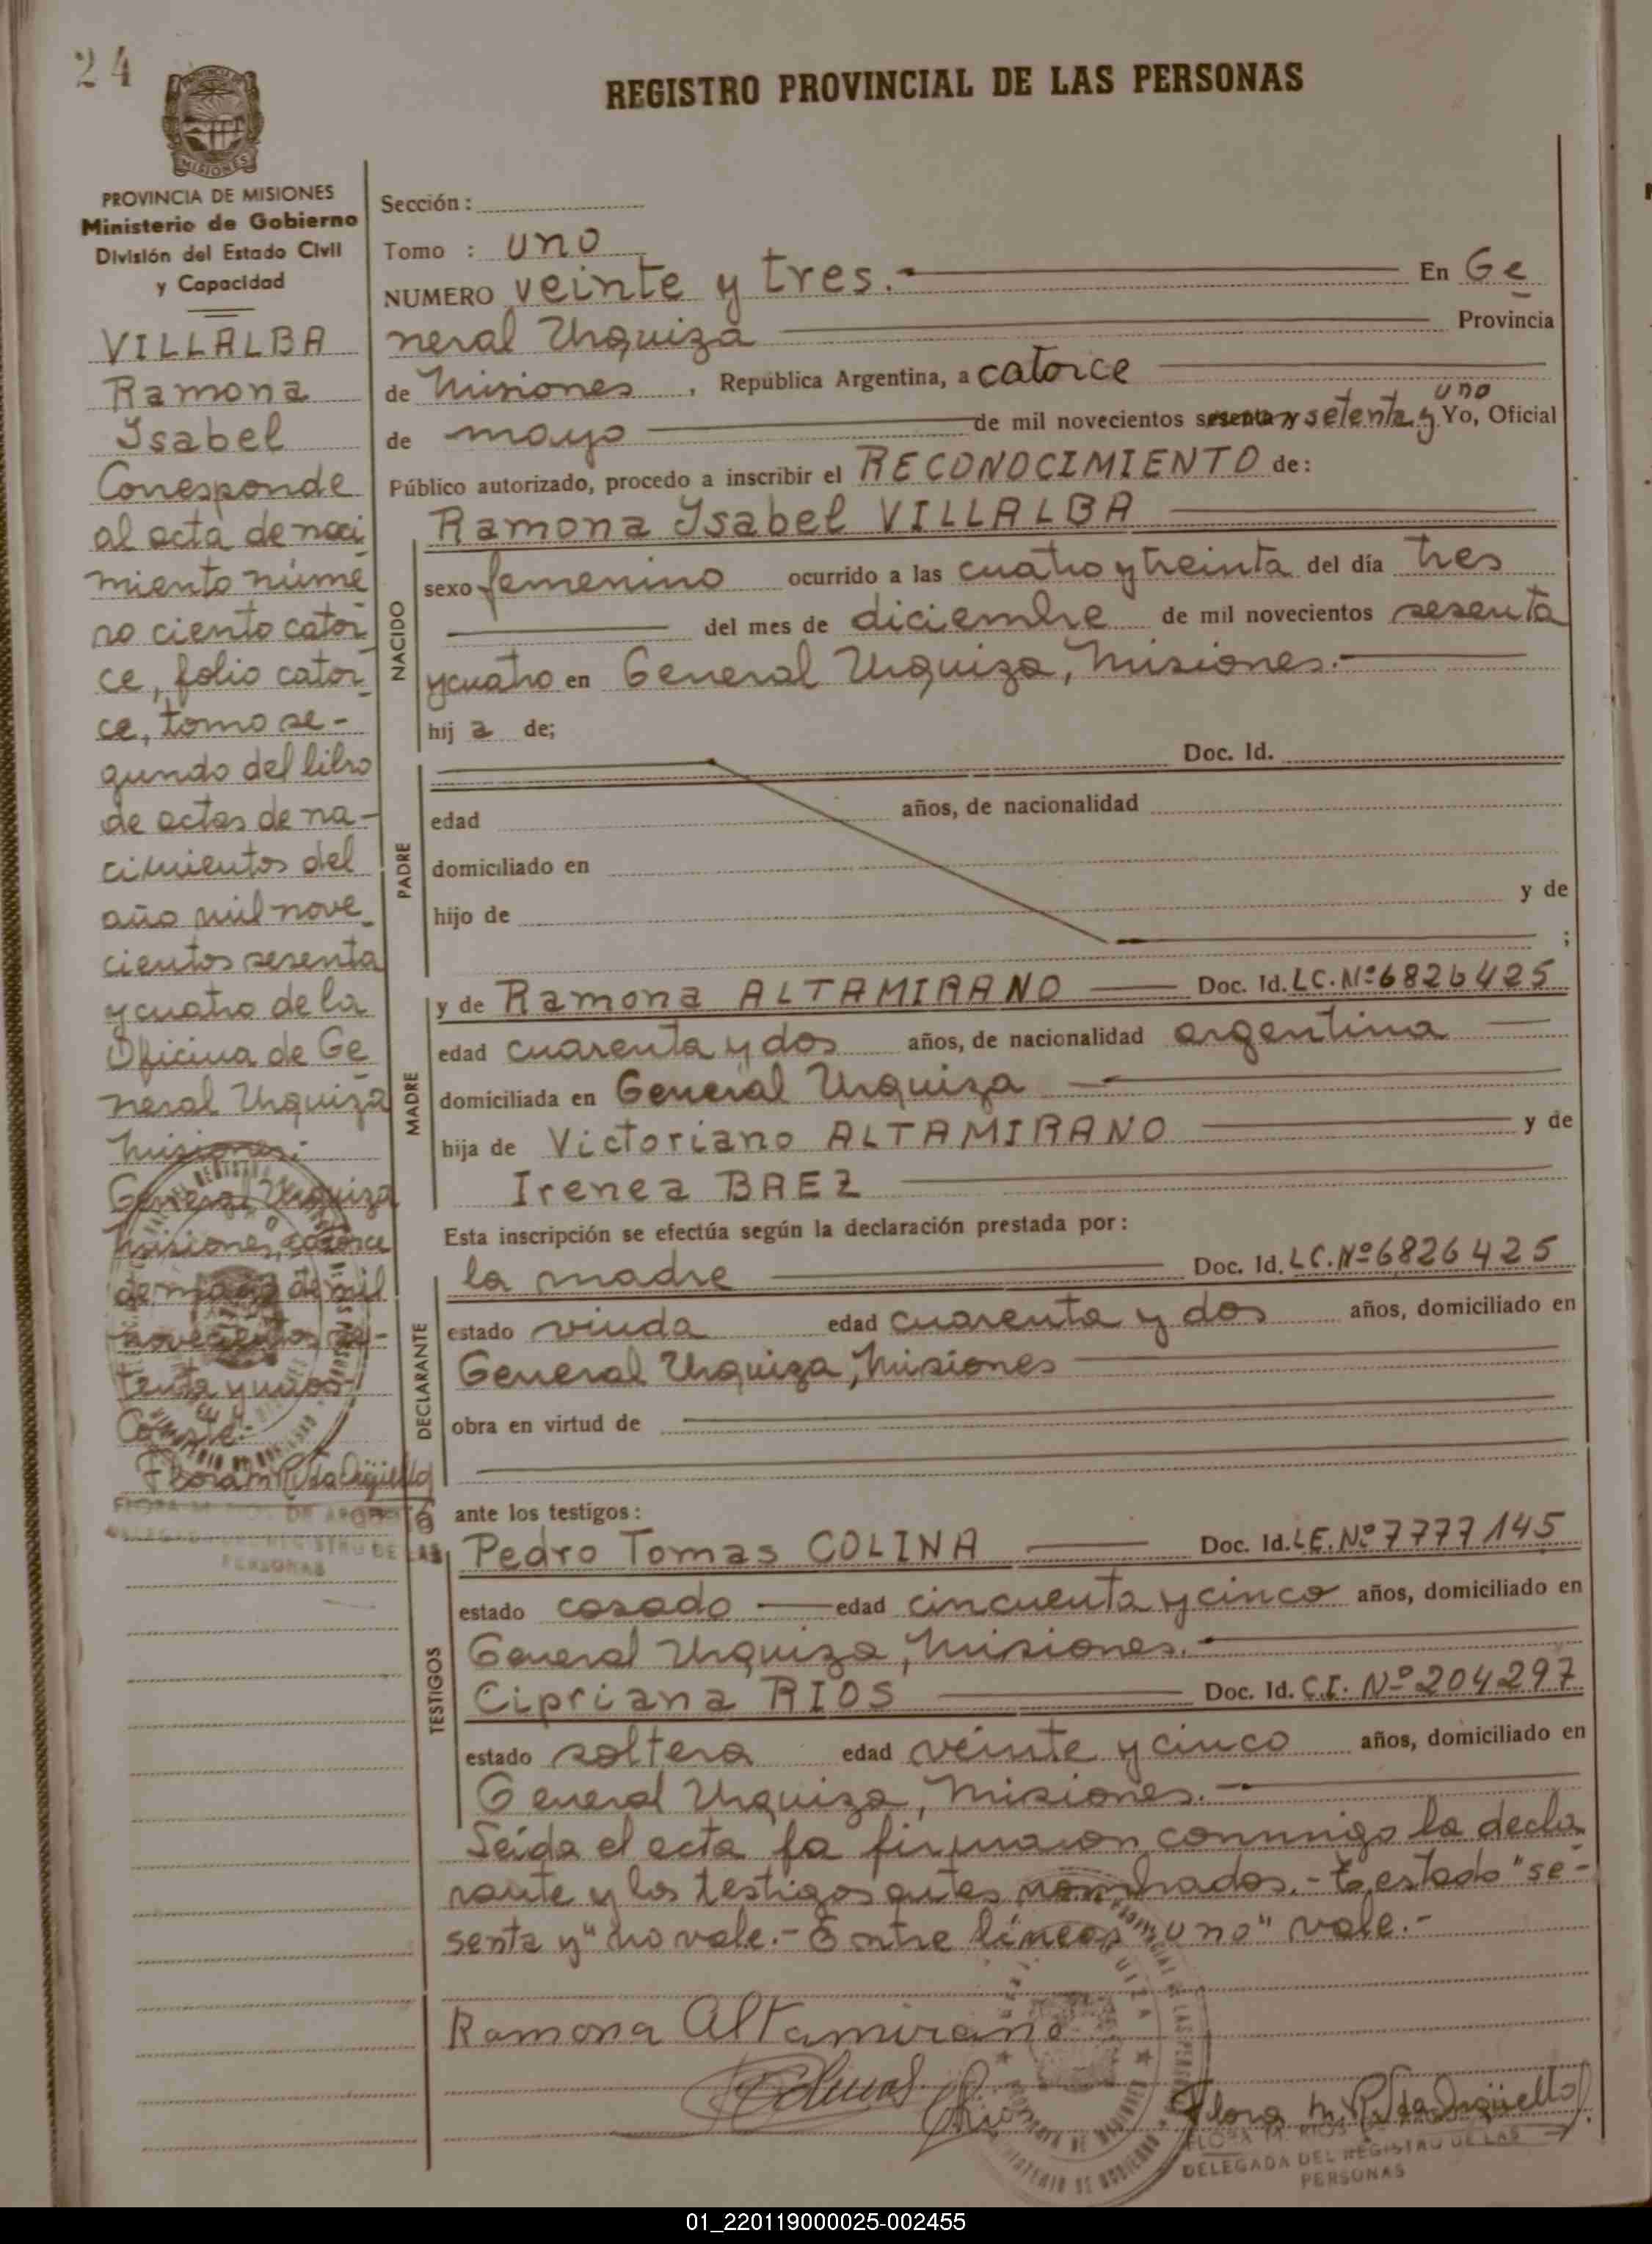 24
REGISTRO PROVINCIAL DE LAS PERSONAS
MISIONES
PROVINCIA DE MISIONES
Ministerio de Gobierno
División del Estado Civil
y Capacidad
VILLALBA
Ramona
Isabel
Corresponde
al acta de naci
miento núme
ro ciento cator
ce, folio cator
ce, tomo se-
gundo del libro
de actas de na-
cimientos del
año mil nove
cientos sesenta
y cuatro de la
Oficina de Ge
neral Urquiza
Misiones.
General Urquiza
Misiones, catorce
de mayo de mil
novecientos se-
tenta y uno.
Conste.-
Flora M R de Argüello
FLORA M. RIOS DE ARGÜELLO
DELEGADA DEL REGISTRO DE LAS
PERSONAS
Sección :
Tomo : uno
NUMERO veinte y tres. En Ge
neral Urquiza Provincia
de Misiones, República Argentina, a catorce
uno
de mayo de mil novecientos sesenta y setenta y Yo, Oficial
Público autorizado, procedo a inscribir el RECONOCIMIENTO de:
NACIDO
Ramona Isabel VILLALBA
sexo femenino ocurrido a las cuatro y treinta del día tres
del mes de diciembre de mil novecientos sesenta
y cuatro en General Urquiza, Misiones.-
hij a de;
PADRE
Doc. Id.
edad años, de nacionalidad
domiciliado en
hijo de y de
;
MADRE
y de Ramona ALTAMIRANO Doc. Id. LC. Nº 6826425
edad cuarenta y dos años, de nacionalidad argentina
domiciliada en General Urquiza
hija de Victoriano ALTAMIRANO y de
Irenea BAEZ
Esta inscripción se efectúa según la declaración prestada por:
DECLARANTE
la madre Doc. Id. LC. Nº 6826425
estado viuda edad cuarenta y dos años, domiciliado en
General Urquiza, Misiones
obra en virtud de
ante los testigos:
TESTIGOS
Pedro Tomas COLINA Doc. Id. LE. Nº 7777145
estado casado edad cincuenta y cinco años, domiciliado en
General Urquiza, Misiones.
Cipriana RIOS Doc. Id. C.I. Nº 204297
estado soltera edad veinte y cinco años, domiciliado en
General Urquiza, Misiones.
Leida el acta la firmaron conmigo la decla
rante y los testigos antes nombrados.- Testado "se-
senta y" no vale.- Entre líneas "uno" vale.-
Ramona Altamirano
Flora M. R de Argüello
FLORA M. RIOS
DELEGADA DEL REGISTRO DE LAS
PERSONAS
01_220119000025-002455